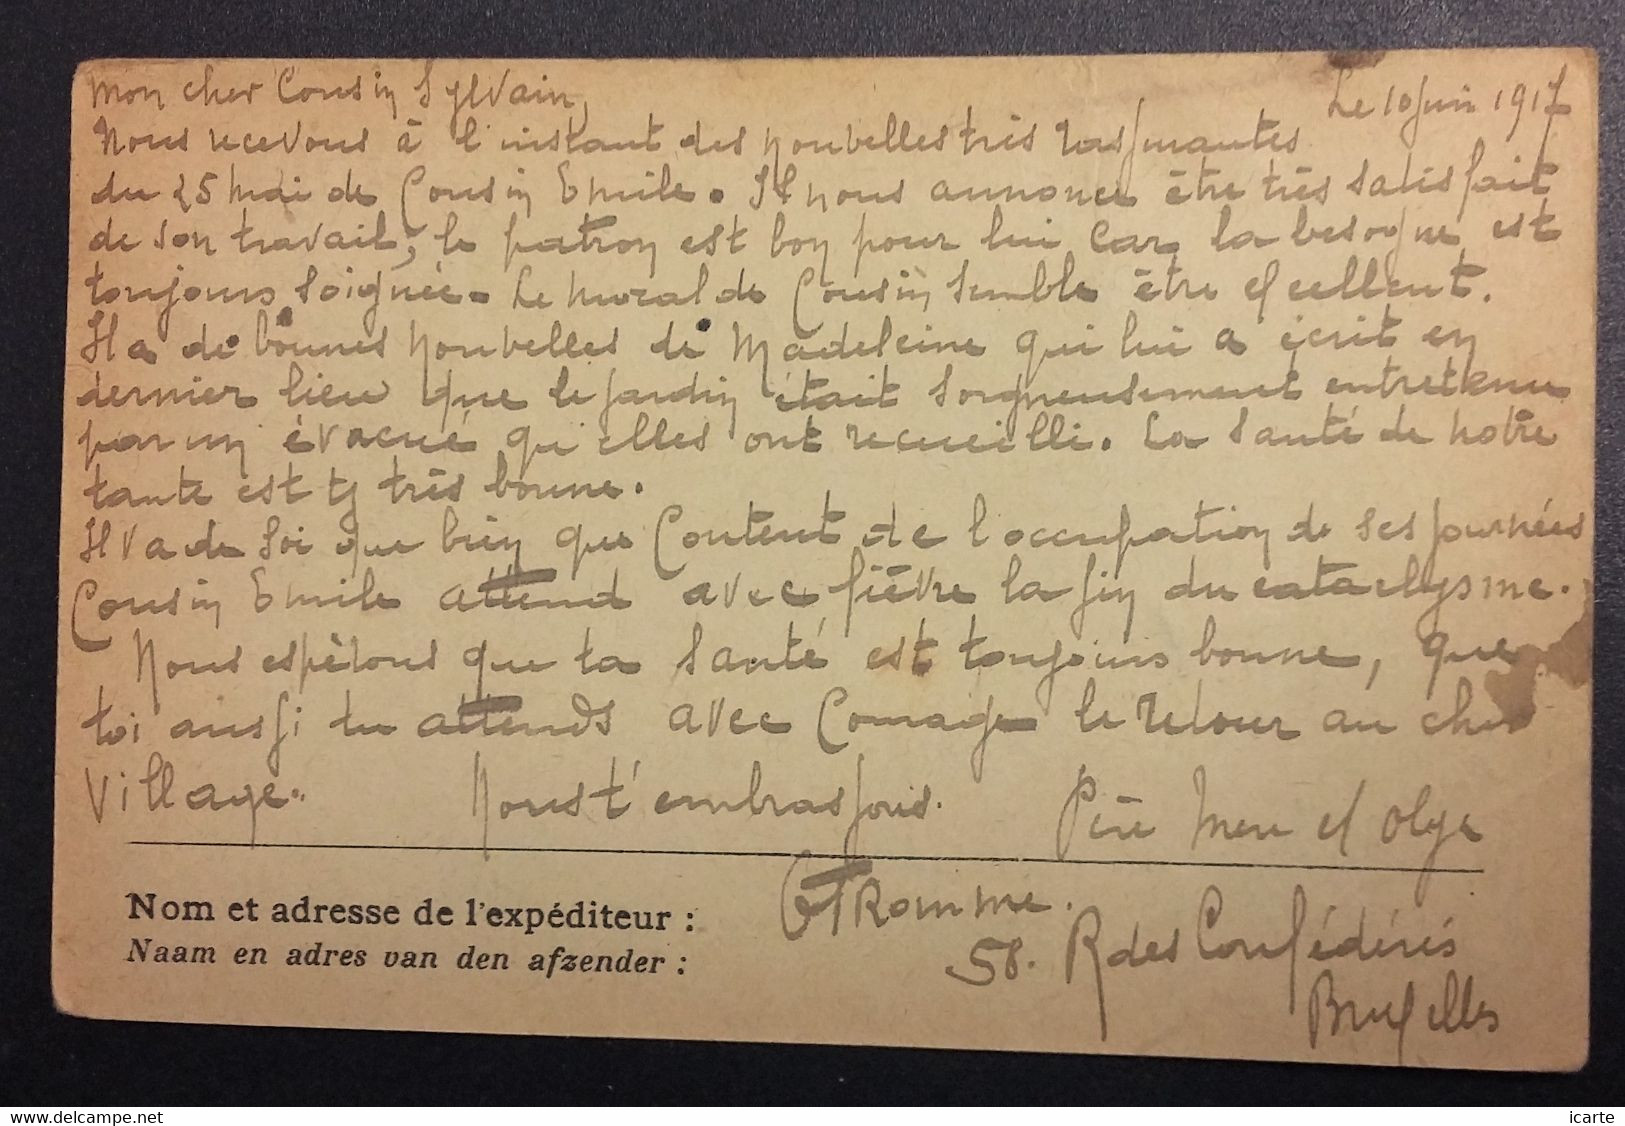 Mon cher Cousin Sylvain, Le 10 juin 1917
Nous recevons à l'instant des nouvelles très rassurantes
du 25 mai de Cousin Emile. Il nous annonce être très satisfait
de son travail, le patron est bon pour lui car la besogne est
toujours soignée. Le moral de Cousin semble être excellent.
Il a de bonnes nouvelles de Madeleine qui lui a écrit en
dernier lieu que le jardin était soigneusement entretenu
par un évacué qu'elles ont recueilli. La santé de notre
tante est tj très bonne.
Il va de soi que bien que content de l'occupation de ses journées
Cousin Emile attend avec fièvre la fin du cataclysme.
Nous espérons que ta santé est toujours bonne, que
toi aussi tu attends avec courage le retour au cher
village. Nous t'embrassons. Père Mère et Olga
Nom et adresse de l'expéditeur : Romme.
Naam en adres van den afzender : 58. R des Confédérés
Bruxelles
delcampe.net
icarte